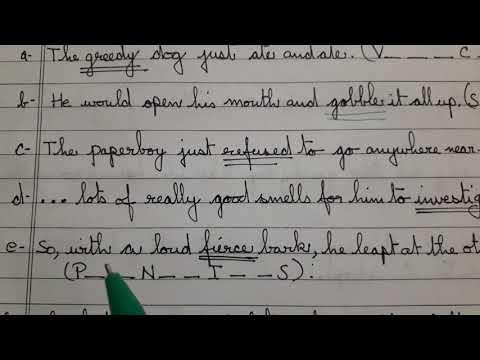 a- The greedy dog just ate and ate. (V _ _ _ C
b- He would open his mouth and gobble it all up. (S
c- The paperboy just refused to go anywhere near
d- ... lots of really good smells for him to investig
e- So, with a loud fierce bark, he leapt at the ot
(P _ _ N _ _ T _ _ S) :